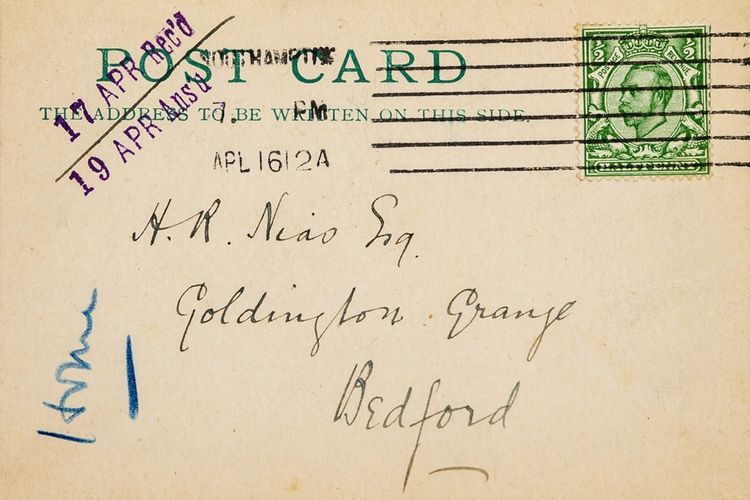 17 APR Rec'd
19 APR Ans'd
POST CARD
THE ADDRESS TO BE WRITTEN ON THIS SIDE.
SOUTHAMPTON
7. PM
APL 16 12 A
1/2 POSTAGE 1/2
HALFPENNY
H. R. Nias Esq.
Goldington Grange
Bedford
Home